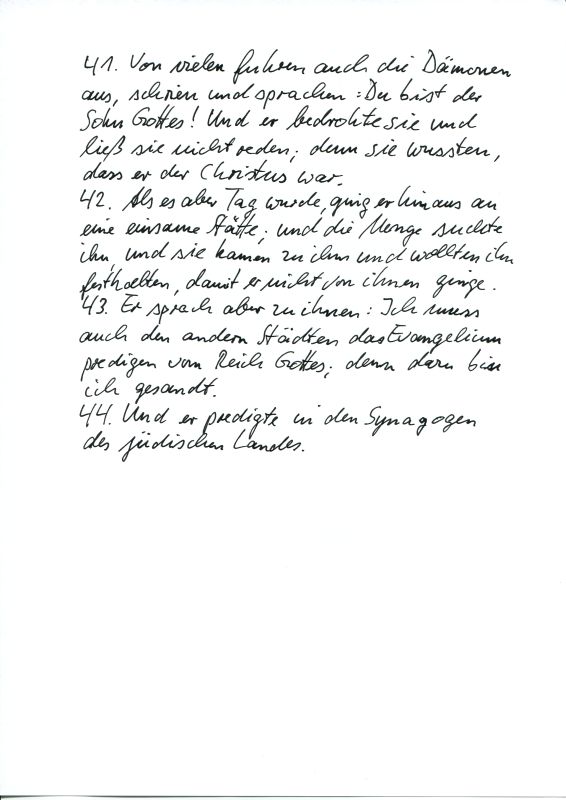 41. Von vielen fuhren auch die Dämonen
aus, schrien und sprachen: Du bist der
Sohn Gottes! Und er bedrohte sie und
ließ sie nicht reden; denn sie wussten,
dass er der Christus war.
42. Als es aber Tag wurde, ging er hinaus an
eine einsame Stätte; und die Menge suchte
ihn, und sie kamen zu ihm und wollten ihn
festhalten, damit er nicht von ihnen ginge.
43. Er sprach aber zu ihnen: Ich muss
auch den andern Städten das Evangelium
predigen vom Reich Gottes; denn dazu bin
ich gesandt.
44. Und er predigte in den Synagogen
des jüdischen Landes.